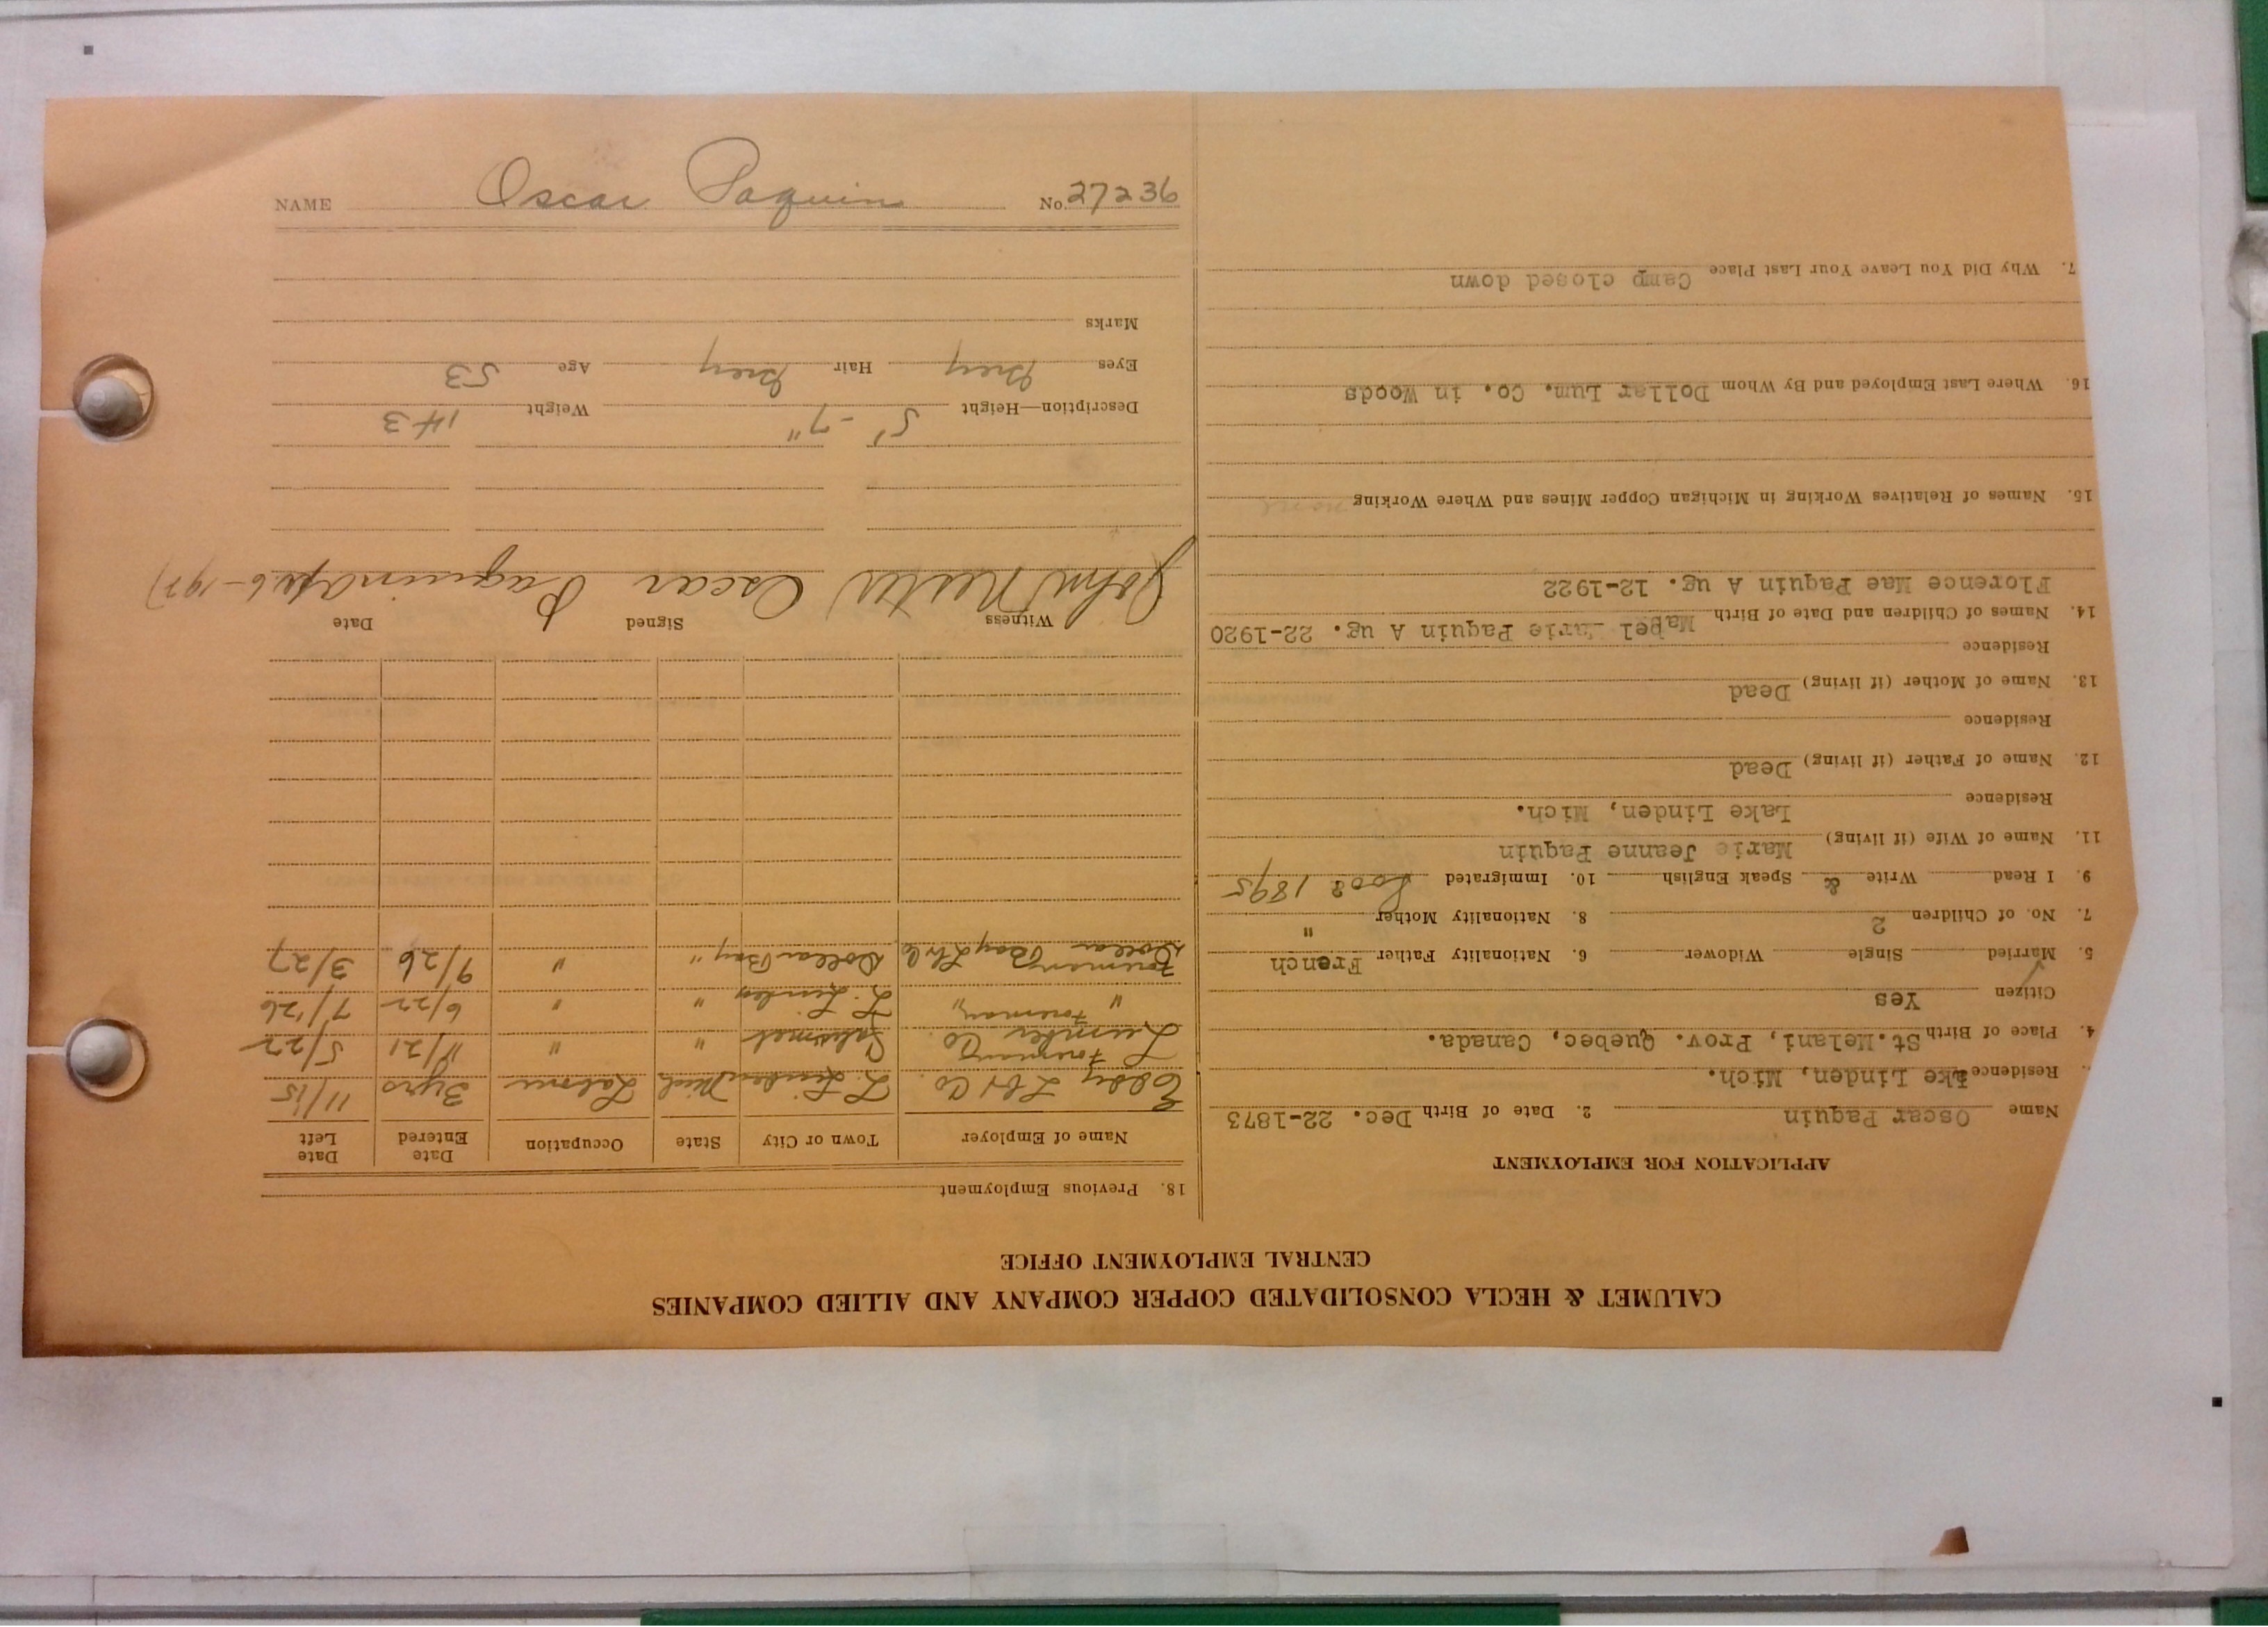 NAME Oscar Paquin No. 27236
CALUMET & HECLA CONSOLIDATED COPPER COMPANY AND ALLIED COMPANIES
CENTRAL EMPLOYMENT OFFICE
APPLICATION FOR EMPLOYMENT
Name Oscar Paquin 2. Date of Birth Dec. 22-1873
Residence Lake Linden, Mich.
4. Place of Birth St.Melani, Prov. Quebec, Canada.
Citizen Yes
5. Married Single Widower 6. Nationality Father French
7. No. of Children 2 8. Nationality Mother "
9. I Read Write & Speak English 10. Immigrated 1895
11. Name of Wife (if living) Marie Jeanne Paquin
Residence Lake Linden, Mich.
12. Name of Father (if living) Dead
Residence
13. Name of Mother (if living) Dead
Residence
14. Names of Children and Date of Birth Mabel Marie Paquin A ug. 22-1920
Florence Mae Paquin A ug. 12-1922
15. Names of Relatives Working in Michigan Copper Mines and Where Working none
16. Where Last Employed and By Whom Dollar Lum. Co. in Woods
7. Why Did You Leave Your Last Place Camp closed down
18. Previous Employment
Name of Employer Town or City State Occupation Date Entered Date Left
Eddy Lbr Co. L. Linden Mich Labor 3yrs 11/15
Foreman
Lumber Co. Calumet " " 11/21 5/22
Foreman
" " L. Linden " " 6/22 7/26
Foreman
Dollar Bay Lbr Co Dollar Bay " " 9/26 3/27
Witness Signed Date
John Oscar Paquin Apr 6-1927
Description—Height 5'-7" Weight 143
Eyes Grey Hair Grey Age 53
Marks